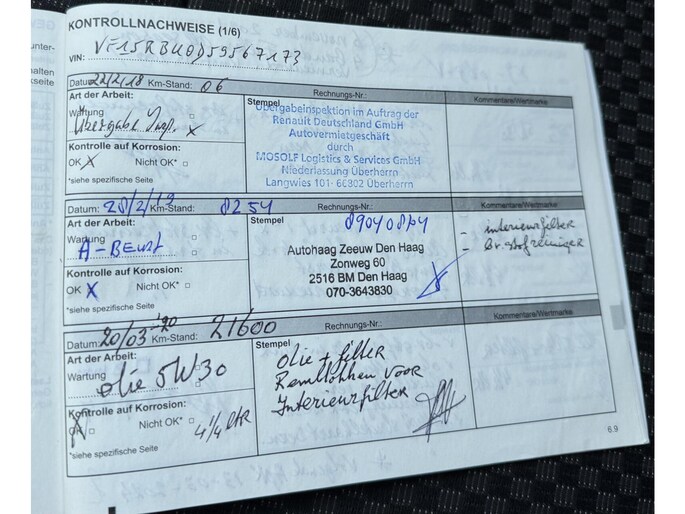 KONTROLLNACHWEISE (1/6)
VIN: VF15RBU0D59567173
Datum: 22/2/18 Km-Stand: 06 Rechnungs-Nr.: Kommentare/Wertmarke:
Art der Arbeit:
Wartung
Übergabe Insp. x
Kontrolle auf Korrosion:
OK X Nicht OK*
*siehe spezifische Seite
Stempel
Übergabeinspektion im Auftrag der
Renault Deutschland GmbH
Autovermietgeschäft
durch
MOSOLF Logistics & Services GmbH
Niederlassung Überherrn
Langwies 101- 66302 Überherrn
Datum: 28/2/19 Km-Stand: 8254 Rechnungs-Nr.: Kommentare/Wertmarke:
Art der Arbeit:
Wartung
A-Beurt
Kontrolle auf Korrosion:
OK X Nicht OK*
*siehe spezifische Seite
Stempel
Autohaag Zeeuw Den Haag
Zonweg 60
2516 BM Den Haag
070-3643830
- interieurfilter
- Br. stofreiniger
Datum: 20/03-'20 Km-Stand: 21600 Rechnungs-Nr.: Kommentare/Wertmarke:
Art der Arbeit:
Wartung
olie 5W30
Kontrolle auf Korrosion:
OK Nicht OK* 4 1/4 ltr
*siehe spezifische Seite
Stempel
Olie + filter
Remblokken voor
Interieurfilter
6.9